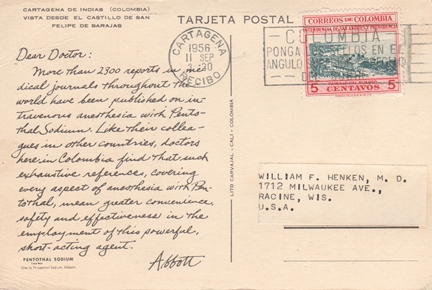 CARTAGENA DE INDIAS (COLOMBIA)
VISTA DESDE EL CASTILLO DE SAN
FELIPE DE BARAJAS
TARJETA POSTAL
Dear Doctor:
More than 2300 reports in me-
dical journals throughout the
world have been published on in-
travenous anesthesia with Pento-
thal Sodium. Like their collea-
gues in other countries, doctors
here in Colombia find that such
exhaustive references, covering
every aspect of anesthesia with Pen-
tothal, mean greater convenience,
safety and effectiveness in the
employment of this powerful,
short-acting agent.
Abbott
PENTOTHAL SODIUM
LITO CARVAJAL - CALI - COLOMBIA
CARTAGENA
1956
11 SEP
RECIBO
CORREOS DE COLOMBIA
5 CENTAVOS 5
PONGA
EN EL
ANGULO
WILLIAM F. HENKEN, M. D.
1712 MILWAUKEE AVE.,
RACINE, WIS.
U.S.A.